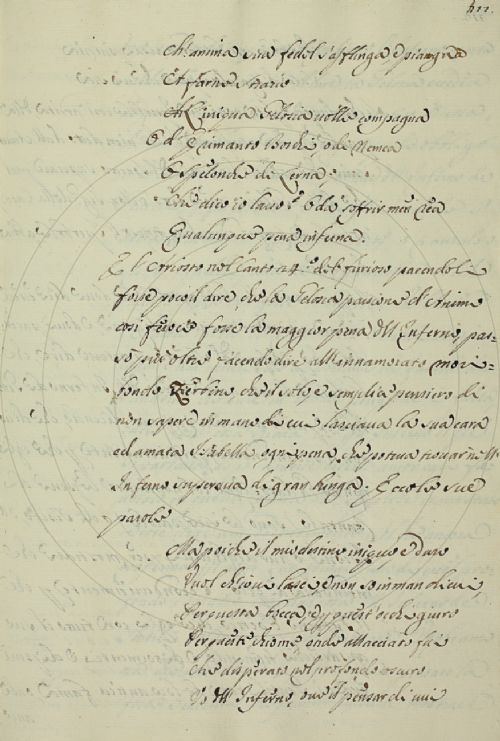 ch'anima sua fedel s'affligga, e pianga
Et farne strazio
Ch'l'iniqua Gelosia volle compagna
O d'Erimanto boschi, o di Nemea
O spelonche di Lerna,
Che dico io lasso? O di soffrir men rea
Qualunque pena inferna.
E l'Ariosto nel Canto 24.º del furioso parendoli
forse poco il dire, che la Gelosia passione d'Anime
così feroce fosse la maggior pena dell'Inferno, pas-
sò più oltre facendo dire all'innamorato mori-
bondo Zerbino, che il solo, e semplice pensiero di
non sapere in mano di cui lasciava la sua cara
ed amata Isabella, ogni pena, che poteva trovar nell'
Inferno superava di gran lunga. Eccole sue
parole
Ma poiche il mio destino iniquo, e duro
Vuol ch'io vi lasci, e non so in man di cui,
Per questa bocca, e p questi occhi giuro
Per queste chiome, onde allacciato fui
che disperato nel profondo oscuro
Vo dell'Inferno, ove il pensar di vui